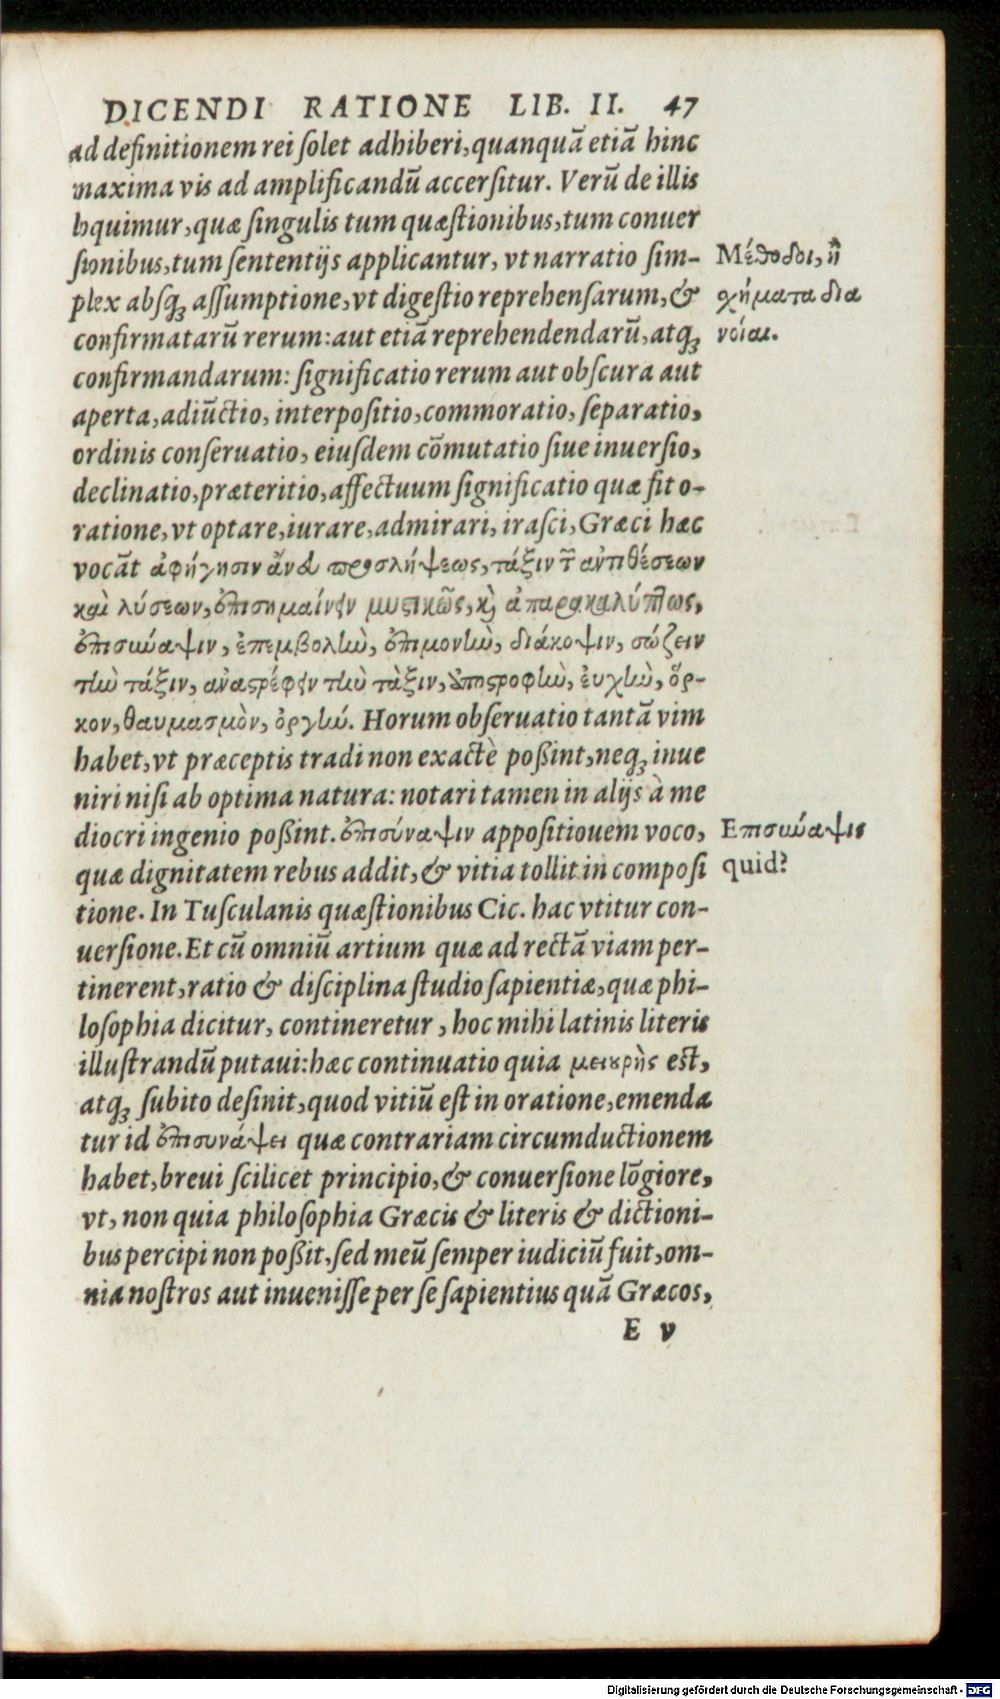 DICENDI RATIONE LIB. II. 47
ad definitionem rei ſolet adhiberi, quanquā etiā hinc
maxima vis ad amplificandū accerſitur. Verū de illis
loquimur, quæ ſingulis tum quæſtionibus, tum conuer
ſionibus, tum ſententijs applicantur, vt narratio ſim-
plex abſqꝫ aſſumptione, vt digeſtio reprehenſarum, &
confirmatarū rerum: aut etiā reprehendendarū, atqꝫ
confirmandarum: ſignificatio rerum aut obſcura aut
aperta, adiūctio, interpoſitio, commoratio, ſeparatio,
ordinis conſeruatio, eiuſdem cōmutatio ſiue inuerſio,
declinatio, præteritio, affectuum ſignificatio quæ fit o-
ratione, vt optare, iurare, admirari, iraſci, Græci hæc
vocāt ἀφήγησιν ἄνευ προσλήψεως, τάξιν τῶν ἀντιθέσεων
καὶ λύσεων, ἐπισημαίνειν μυστικῶς, καὶ ἀπαρακαλύπτως,
ἐπισύναψιν, ἐπεμβολὴν, ἐπιμονὴν, διάκοψιν, σώζειν
τὴν τάξιν, ἀναστρέφειν τὴν τὰξιν, ὑποστροφὴν, ἐυχὴν, ὅρ-
κον, θαυμασμὸν, ὀργήν. Horum obſeruatio tantā vim
habet, vt præceptis tradi non exactè poßint, neqꝫ inue
niri niſi ab optima natura: notari tamen in alijs à me
diocri ingenio poßint. ἐπισύναψιν appoſitiouem voco,
quæ dignitatem rebus addit, & vitia tollit in compoſi
tione. In Tuſculanis quæſtionibus Cic. hac vtitur con-
uerſione. Et cū omniū artium quæ ad rectā viam per-
tinerent, ratio & diſciplina ſtudio ſapientiæ, quæ phi-
loſophia dicitur, contineretur, hoc mihi latinis literis
illuſtrandū putaui: hæc continuatio quia μειουρὴς eſt,
atqꝫ ſubito deſinit, quod vitiū eſt in oratione, emenda
tur id ἐπισυνάψει quæ contrariam circumductionem
habet, breui ſcilicet principio, & conuerſione lōgiore,
vt, non quia philoſophia Græcis & literis & dictioni-
bus percipi non poßit, ſed meū ſemper iudiciū fuit, om-
nia noſtros aut inueniſſe per ſe ſapientius quā Græcos,
E v
Μέθοδοι, ἢ
σχήματα δια
νοίαι.
Επισύναψις
quid?
Digitalisierung gefördert durch die Deutsche Forschungsgemeinschaft - DFG